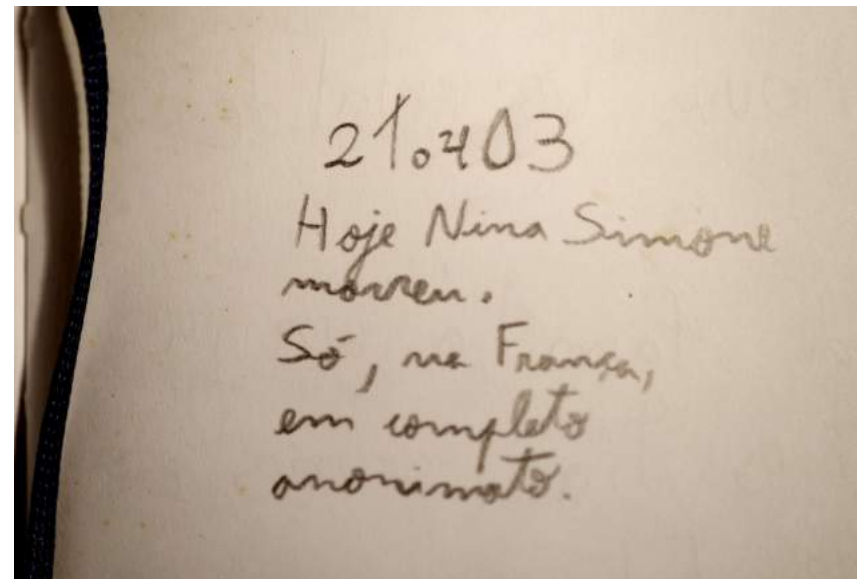 21.403
Hoje Nina Simone
morreu.
Só, na França,
em completo
anonimato.